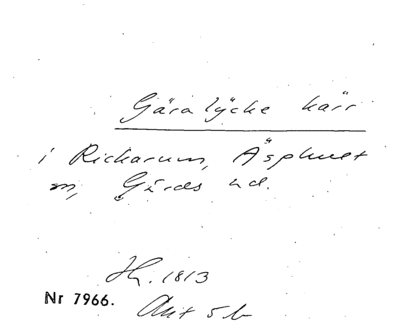 Gåra lycke kärr
i Rickarum, Äsphult
sn, Gärds hd.
Hg. 1813
Nr 7966.
Akt 5b